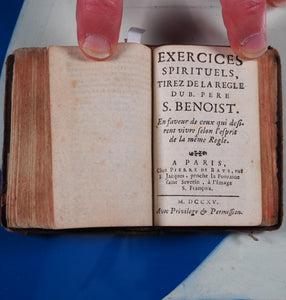 EXERCICES
SPIRITUELS,
TIREZ DE LA REGLE
DU B. PERE
S. BENOIST.
En faveur de ceux qui desi-
rent vivre selon l'esprit
de la même Regle.
A PARIS,
Chez PIERRE DE BATS, ruë
S. Jacques, proche la Fontaine
saint Severin, à l'Image
S. François.
M. DCCXV.
Avec Privilege & Permission.